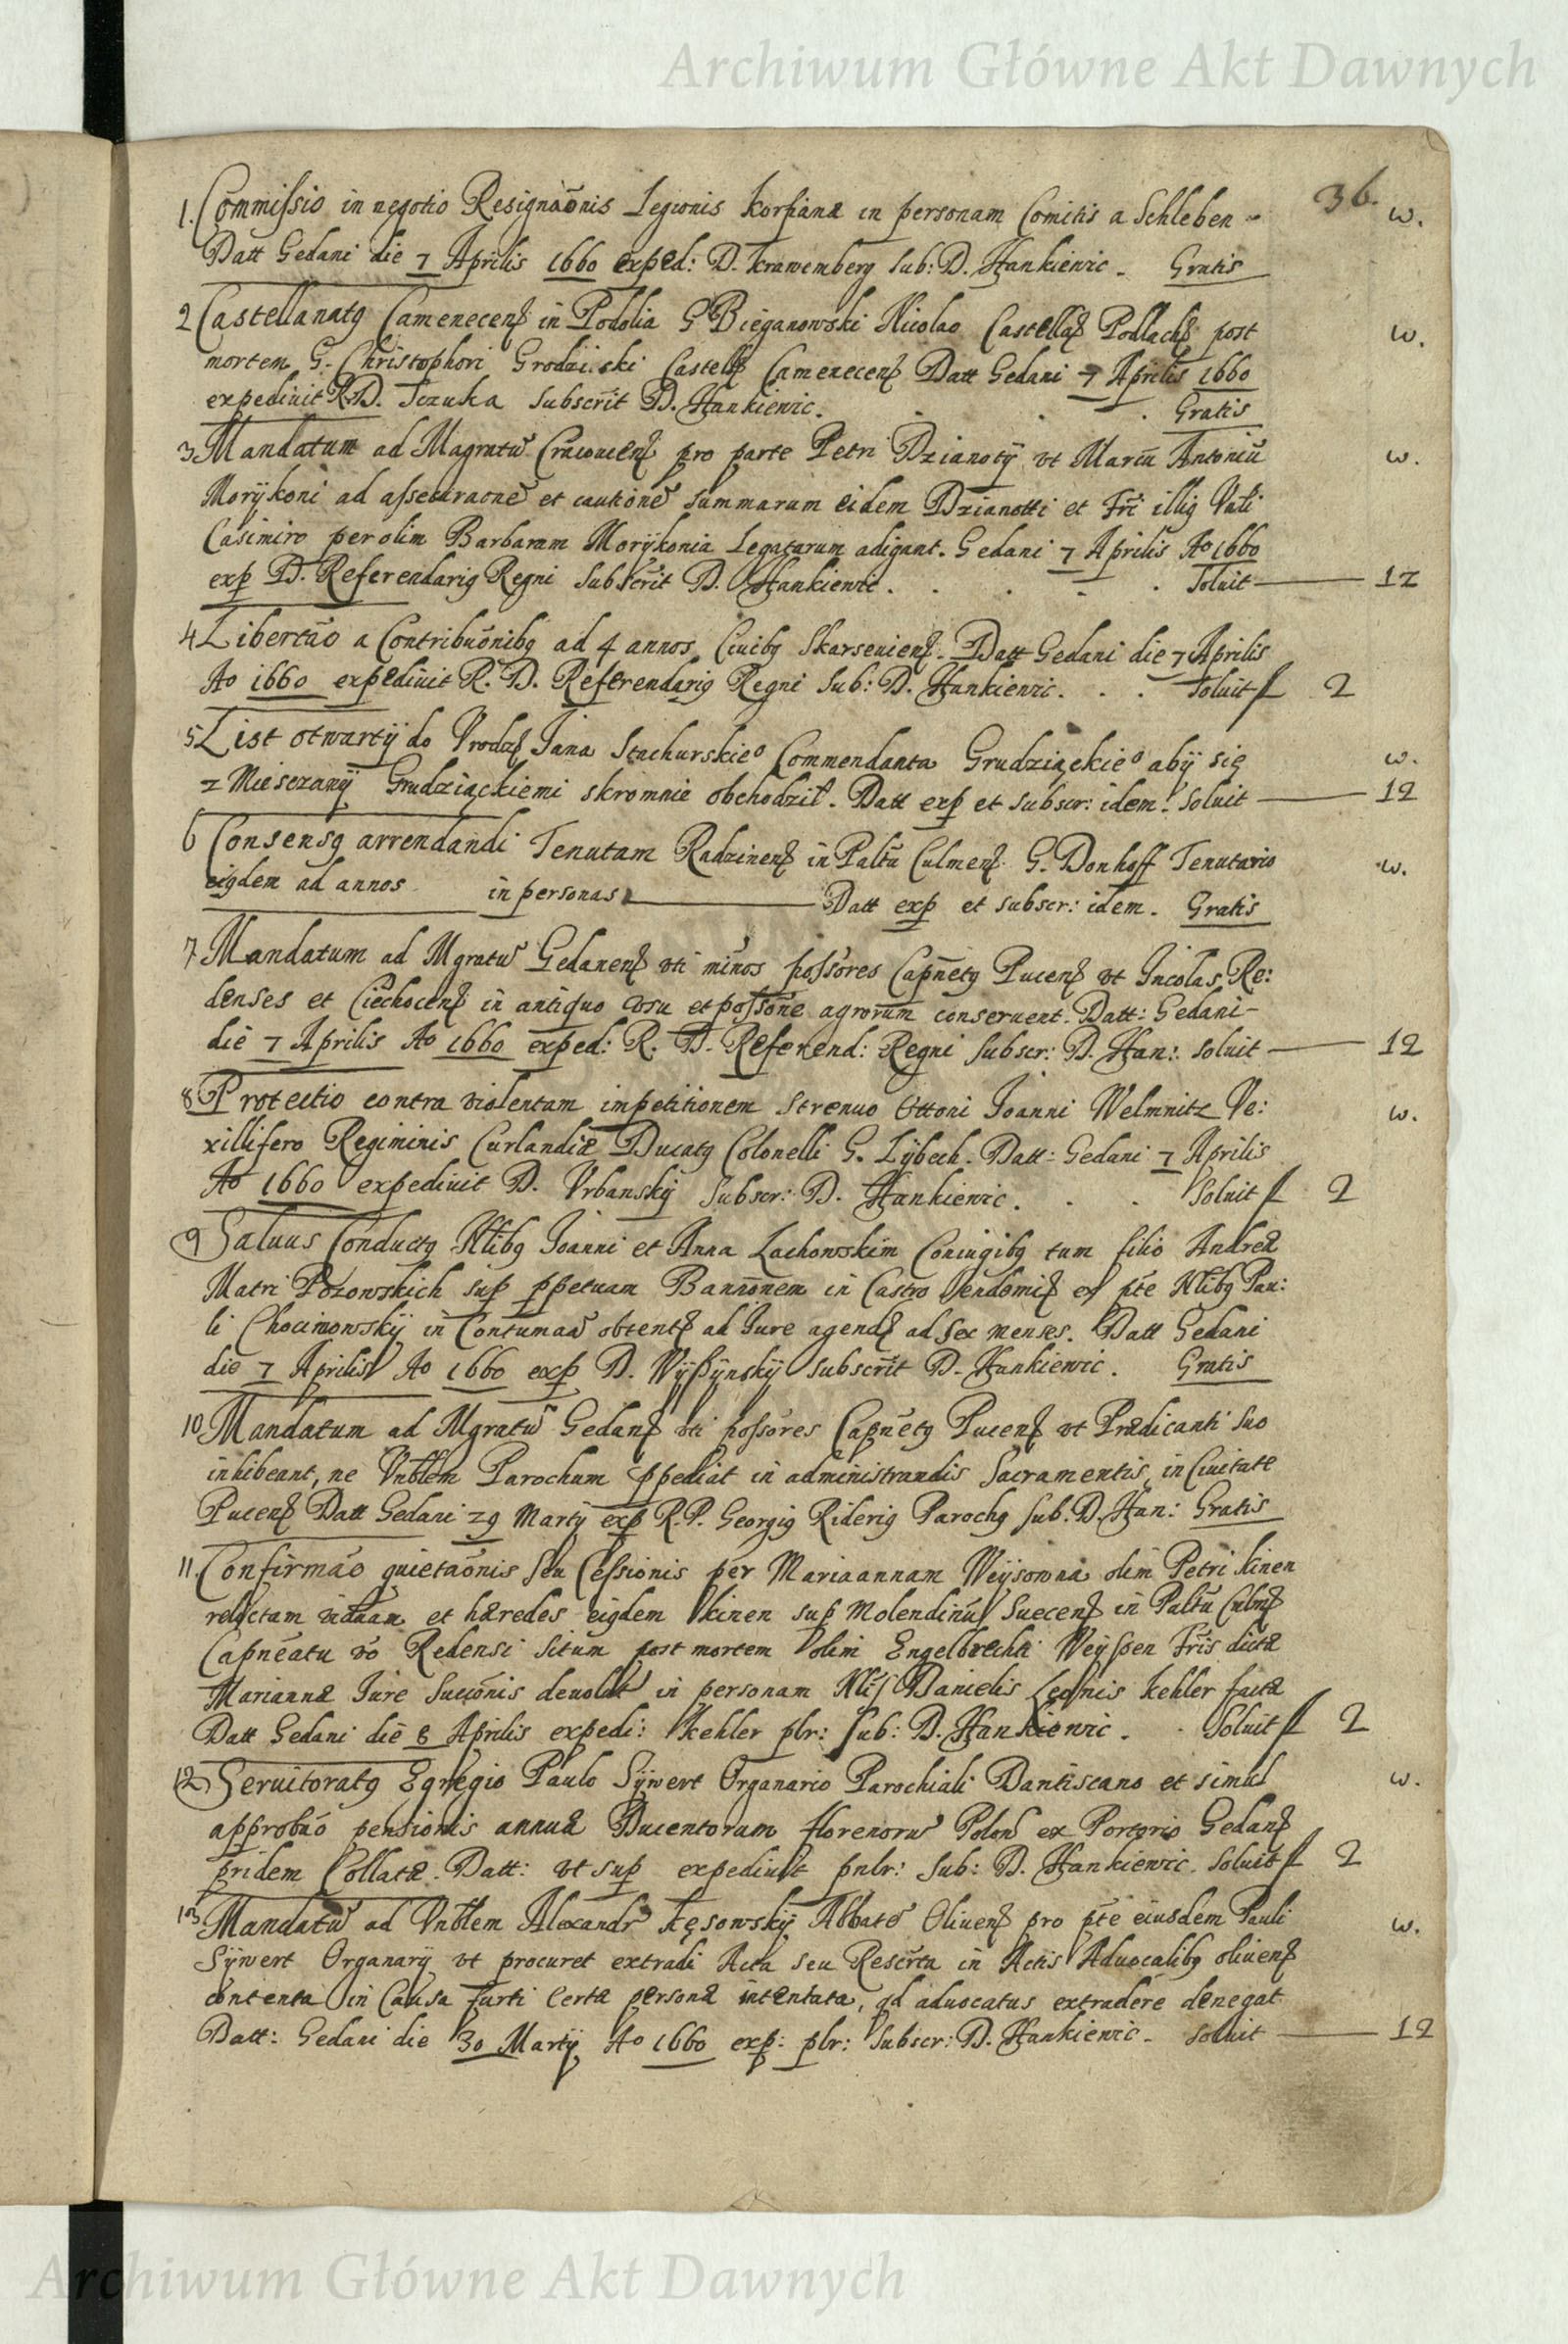 Archiwum Główne Akt Dawnych
36.
1. Commissio in negotio Resignaōnis Legionis Korfianæ in personam Comitis a Schleben w.
Datt Gedani die 7 Aprilis 1660 exped: D. Krawemberg sub: D. Hankiewic. Gratis
2 Castellanatq Camenecens in Podolia G Bieganowski Nicolao Castellas Podlachs post w.
mortem G. Christophori Grodzicki Castells Camenecens Datt Gedani 7 Aprilis 1660
expediuit R D. Sczuka subscrīt D. Hankiewic. Gratis
3 Mandatum ad Magratū Cracouiens pro parte Petri Dzianotÿ vt Marcū Antoniū w.
Morÿkoni ad assecuraōnē et cautionē summarum eidem Dzianotti et Frī illiq Vali
Casimiro per olim Barbaram Morÿkonia Legatarum adigant. Gedani 7 Aprilis Ao 1660
exp D. Referendariq Regni subscrīt D. Hankiewic. Soluit — 12
4 Libertāo a Contribuōnibq ad 4 annos Ciuibq Skarseuiens. Datt Gedani die 7 Aprilis
Ao 1660 expediuit R. D. Referendariq Regni sub: D. Hankiewic. Soluit f 2
5 List otwartÿ do Vrodz Jana Stachurskieo Commendanta Grudziąckieo abÿ się w.
z Miesczanÿ Grudziąckiemi skromnie obchodził. Datt exp et subscr: idem. Soluit — 12
6 Consensq arrendandi Tenutam Radzinens in Paltū Culmens G. Donhoff Tenutario w.
eiqdem ad annos in personas — Datt exp et subscr: idem. Gratis
7 Mandatum ad Mgratū Gedanens vti minos possōres Capnētq Pucens vt Incolas Re:
denses et Ciechocens in antiquo vsu et possōne agrorum conseruent. Datt: Gedani
die 7 Aprilis Ao 1660 exped: R. D. Referend: Regni subscr: D. Han: soluit — 12
8 Protectio contra violentam impetitionem strenuo Ottoni Joanni Welmnitz Ve: w.
xillifero Regiminis Curlandiæ Ducatq Colonelli G. Lÿbech. Datt: Gedani 7 Aprilis
Ao 1660 expediuit D. Vrbanskÿ subscr: D. Hankiewic. Soluit f 2
9 Saluus Conductq Nlibq Joanni et Anna Lachowskim Coniugibq tum filio Andreæ
Matri Pozowskich sup ppetuam Bannōnem in Castro Vendomis ex pte Nlibq Pau:
li Chocimowskÿ in Contumaā obtents ad Jure agends ad sex menses. Datt Gedani
die 7 Aprilis Ao 1660 exp D. Wÿssÿnskÿ subscrīt D. Hankiewic. Gratis
10 Mandatum ad Mgratū Gedans vti possōres Capnētq Pucens vt Prædicanti suo
inhibeant, ne Vnblem Parochum ppediat in administrandis Sacramentis, in Ciuitate
Pucens Datt Gedani 29 Martÿ exp R. P. Georgiq Rideriq Parochq sub. D. Han: Gratis
11. Confirmāo quietaōnis seu Cessionis per Mariaannam Weÿsowna olim Petri Kinen
relictam viduam et hæredes eiqdem Kinen sup Molendinū Suecens in Paltū Culms
Capnēatu vō Redensi situm post mortem olim Engelbrechti Weÿssen Frīs dictæ
Mariannæ Jure succōnis deuolut in personam Nlis Danielis Leonis Kehler factæ
Datt Gedani die 8 Aprilis expedi: Kehler plr: sub: D. Hankiewic. Soluit f 2
12 Seruitoratq Egregio Paulo Sÿwert Organario Parochiali Dantiscano et simul w.
approbāo pensionis annuæ Ducentorum florenorū Polon ex Portorio Gedans
pridem Collatæ. Datt: vt sup expediuit pnlr: sub: D. Hankiewic. Soluit f 2
13 Mandatū ad Vnblem Alexandr Kęsowskÿ Abbatē Oliuens pro pte eiusdem Pauli w.
Sÿwert Organarÿ vt procuret extradi Acta seu Rescrīta in Actis Aduocalibq oliuens
contenta in Causa furti Certæ personæ intentata, qd aduocatus extradere denegat
Datt: Gedani die 30 Martÿ Ao 1660 exp: plr: subscr: D. Hankiewic. Soluit — 12
Archiwum Główne Akt Dawnych